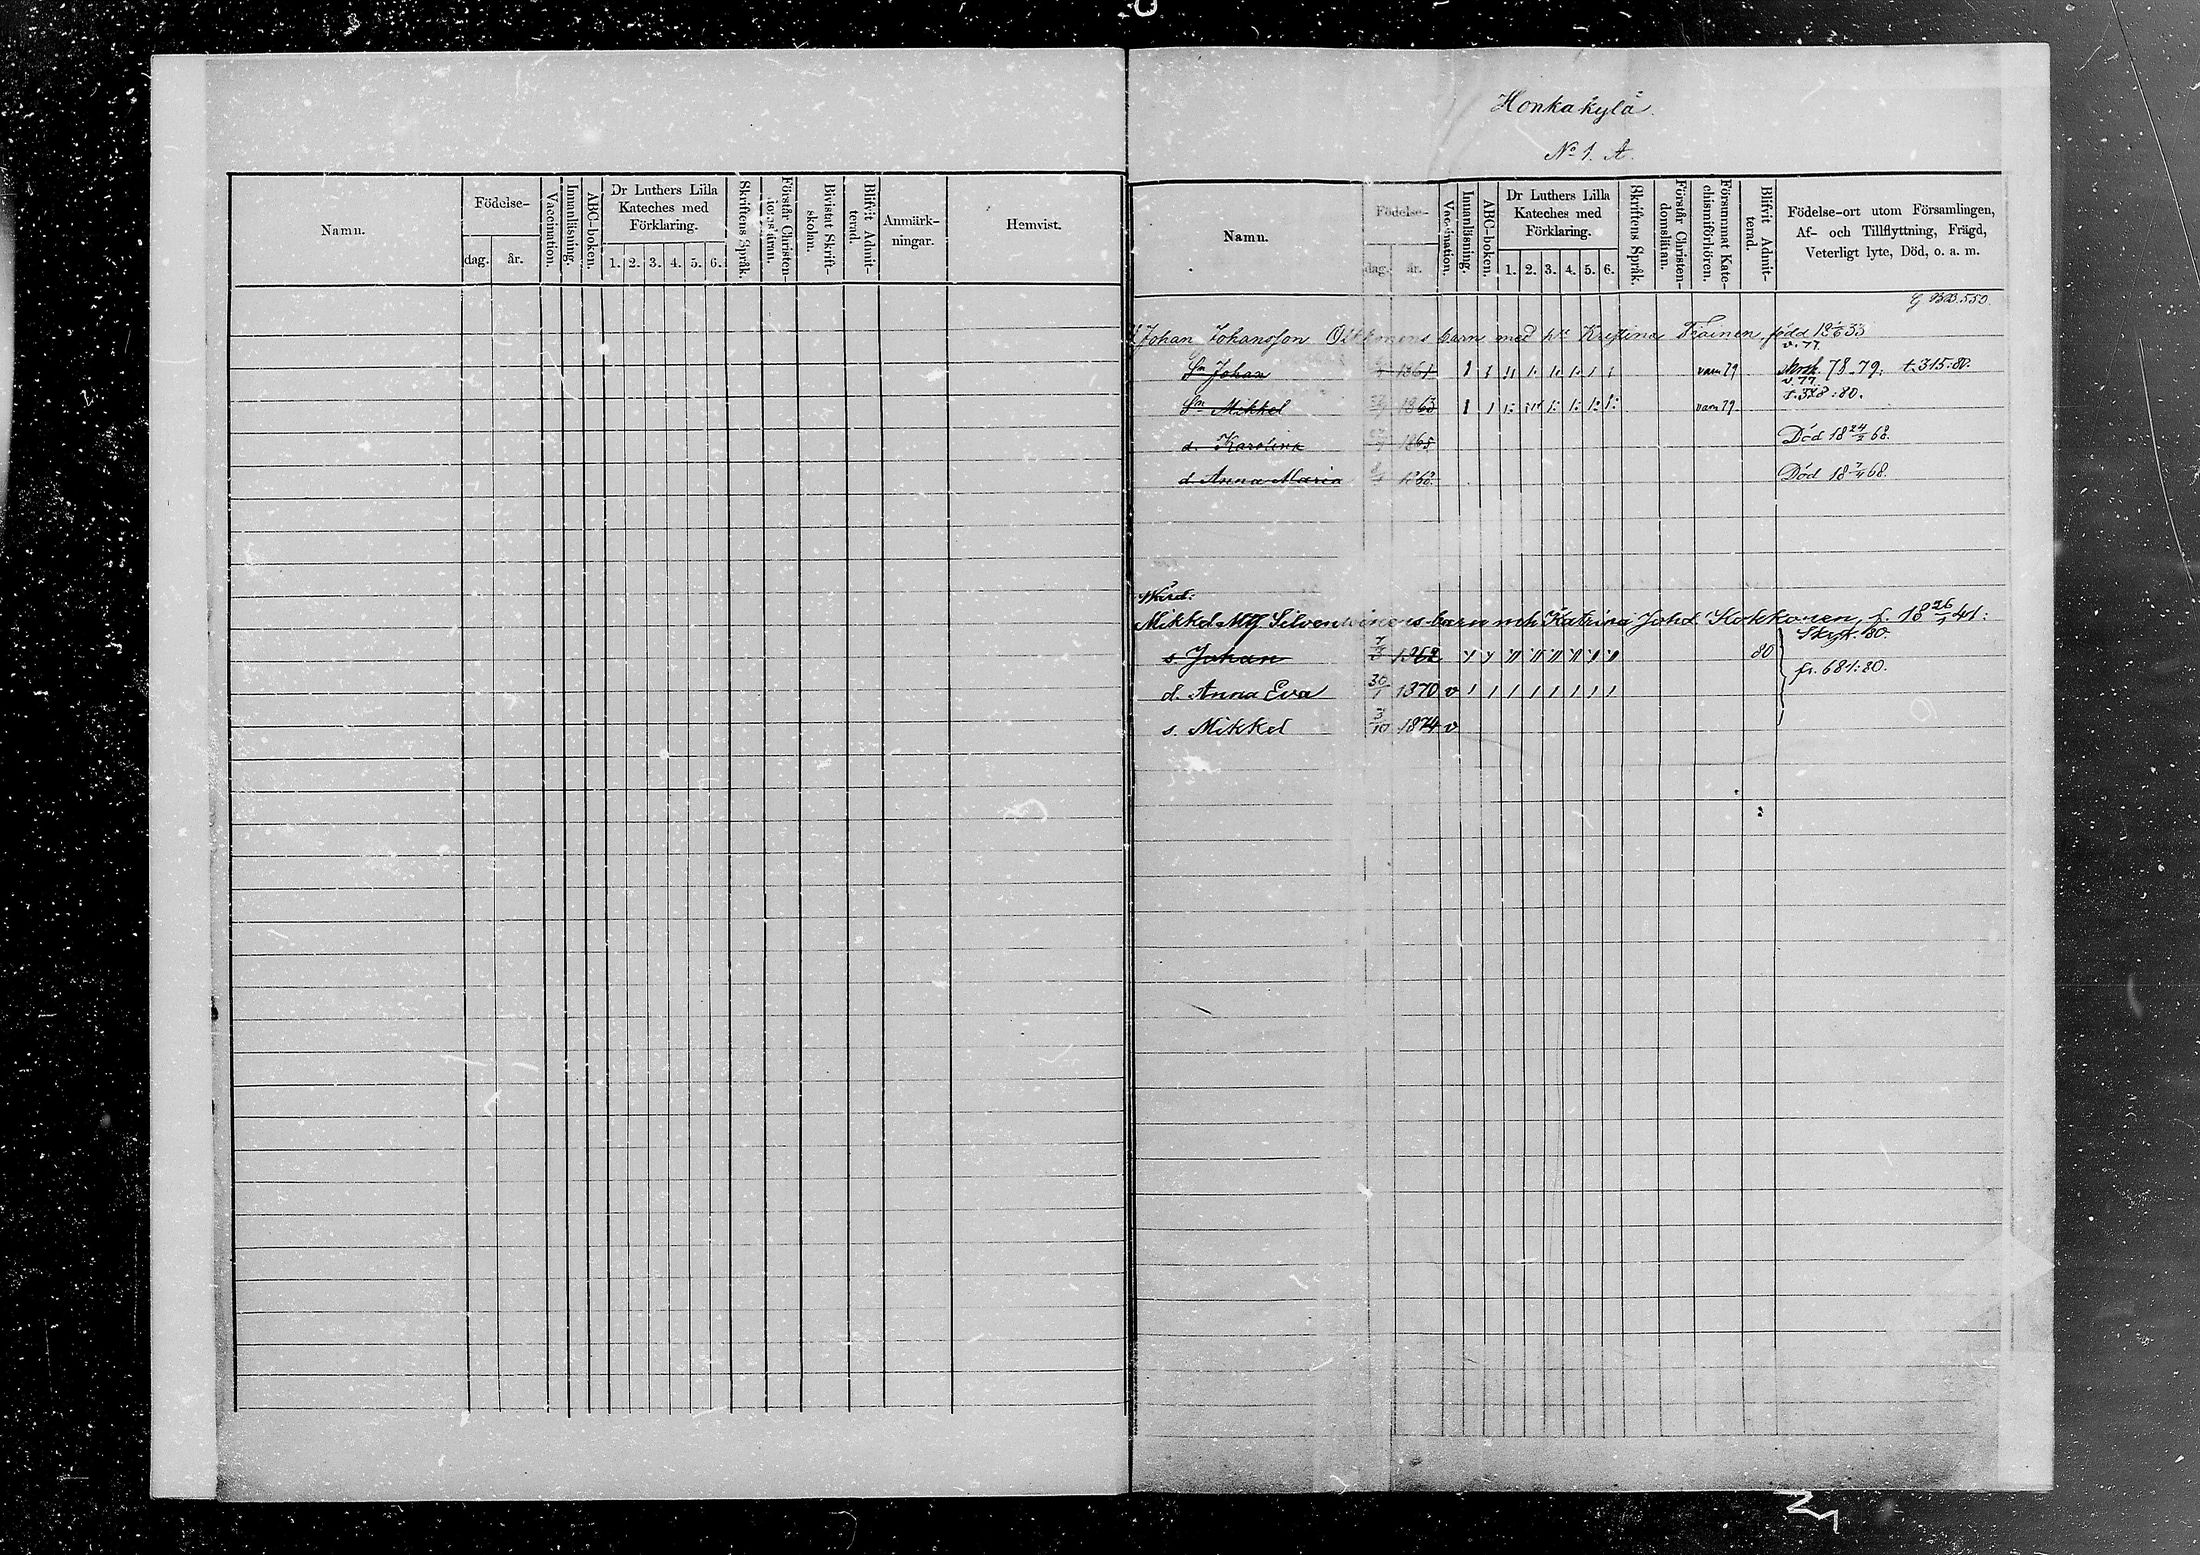 Honkakylä.
No 1. A.
Namn.
Födelse-
dag. år.
Vaccination.
Innanläsning.
ABC-boken.
Dr Luthers Lilla Kateches med Förklaring.
1. 2. 3. 4. 5. 6.
Skriftens Språk.
Förstår Christendomsläran.
Bivistat Skriftskolan.
Blifvit Admitterad.
Anmärkningar.
Hemvist.
Namn.
Födelse-
dag. år.
Vaccination.
Innanläsning.
ABC-boken.
Dr Luthers Lilla
Kateches med
Förklaring.
1. 2. 3. 4. 5. 6.
Skriftens Språk.
Förstår Christendomsläran.
Försummat Katechismiförhören.
Blifvit Admitterad.
Födelse-ort utom Församlingen,
Af- och Tillflyttning, Frägd,
Veterligt lyte, Död, o. a. m.
BB. 550.
Johan Johansson barn med Kristina född
v. 77.
Sn Johan 1861 vam 79 78-79. t. 315:80.
v. 77.
Sn Mikkel 1863 vam 79 t. 378:80.
d. Karolina 1865 Död 18 24/3 68.
d. Anna Maria Död 18 7/4 68.
Mikkel Silvennoinens barn Katrina Johd Kokkonen, f. 18 26/1 41:
s. Johan 1862 80
fr. 681:80.
d. Anna Eva 30/1 1870 v
s. Mikkel 3/10 1874 v